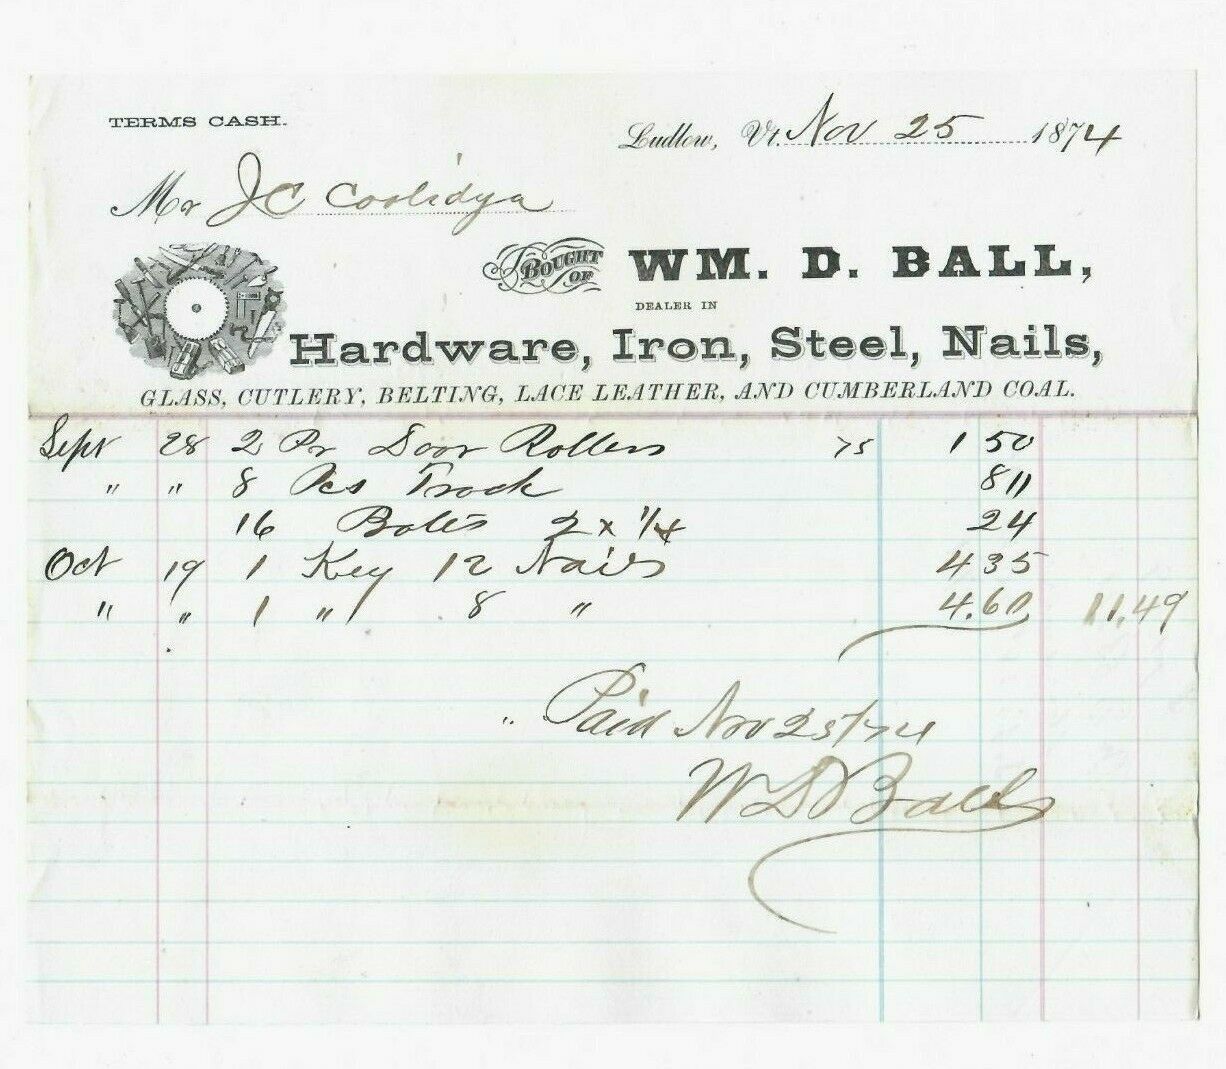 TERMS CASH.
Ludlow, Vt. Nov 25 1874
Mr J C Coolidge
BOUGHT OF WM. D. BALL,
DEALER IN
Hardware, Iron, Steel, Nails,
GLASS, CUTLERY, BELTING, LACE LEATHER, AND CUMBERLAND COAL.
Sept 28 2 Pr Door Rollers 75 1 50
" " 8 Pcs Track 8 11
16 Bolts 2 x 1/4 24
Oct 19 1 Keg 12 Nails 4 35
" " 1 " 8 " 4.60 11.49
Paid Nov 25/74
W D Ball